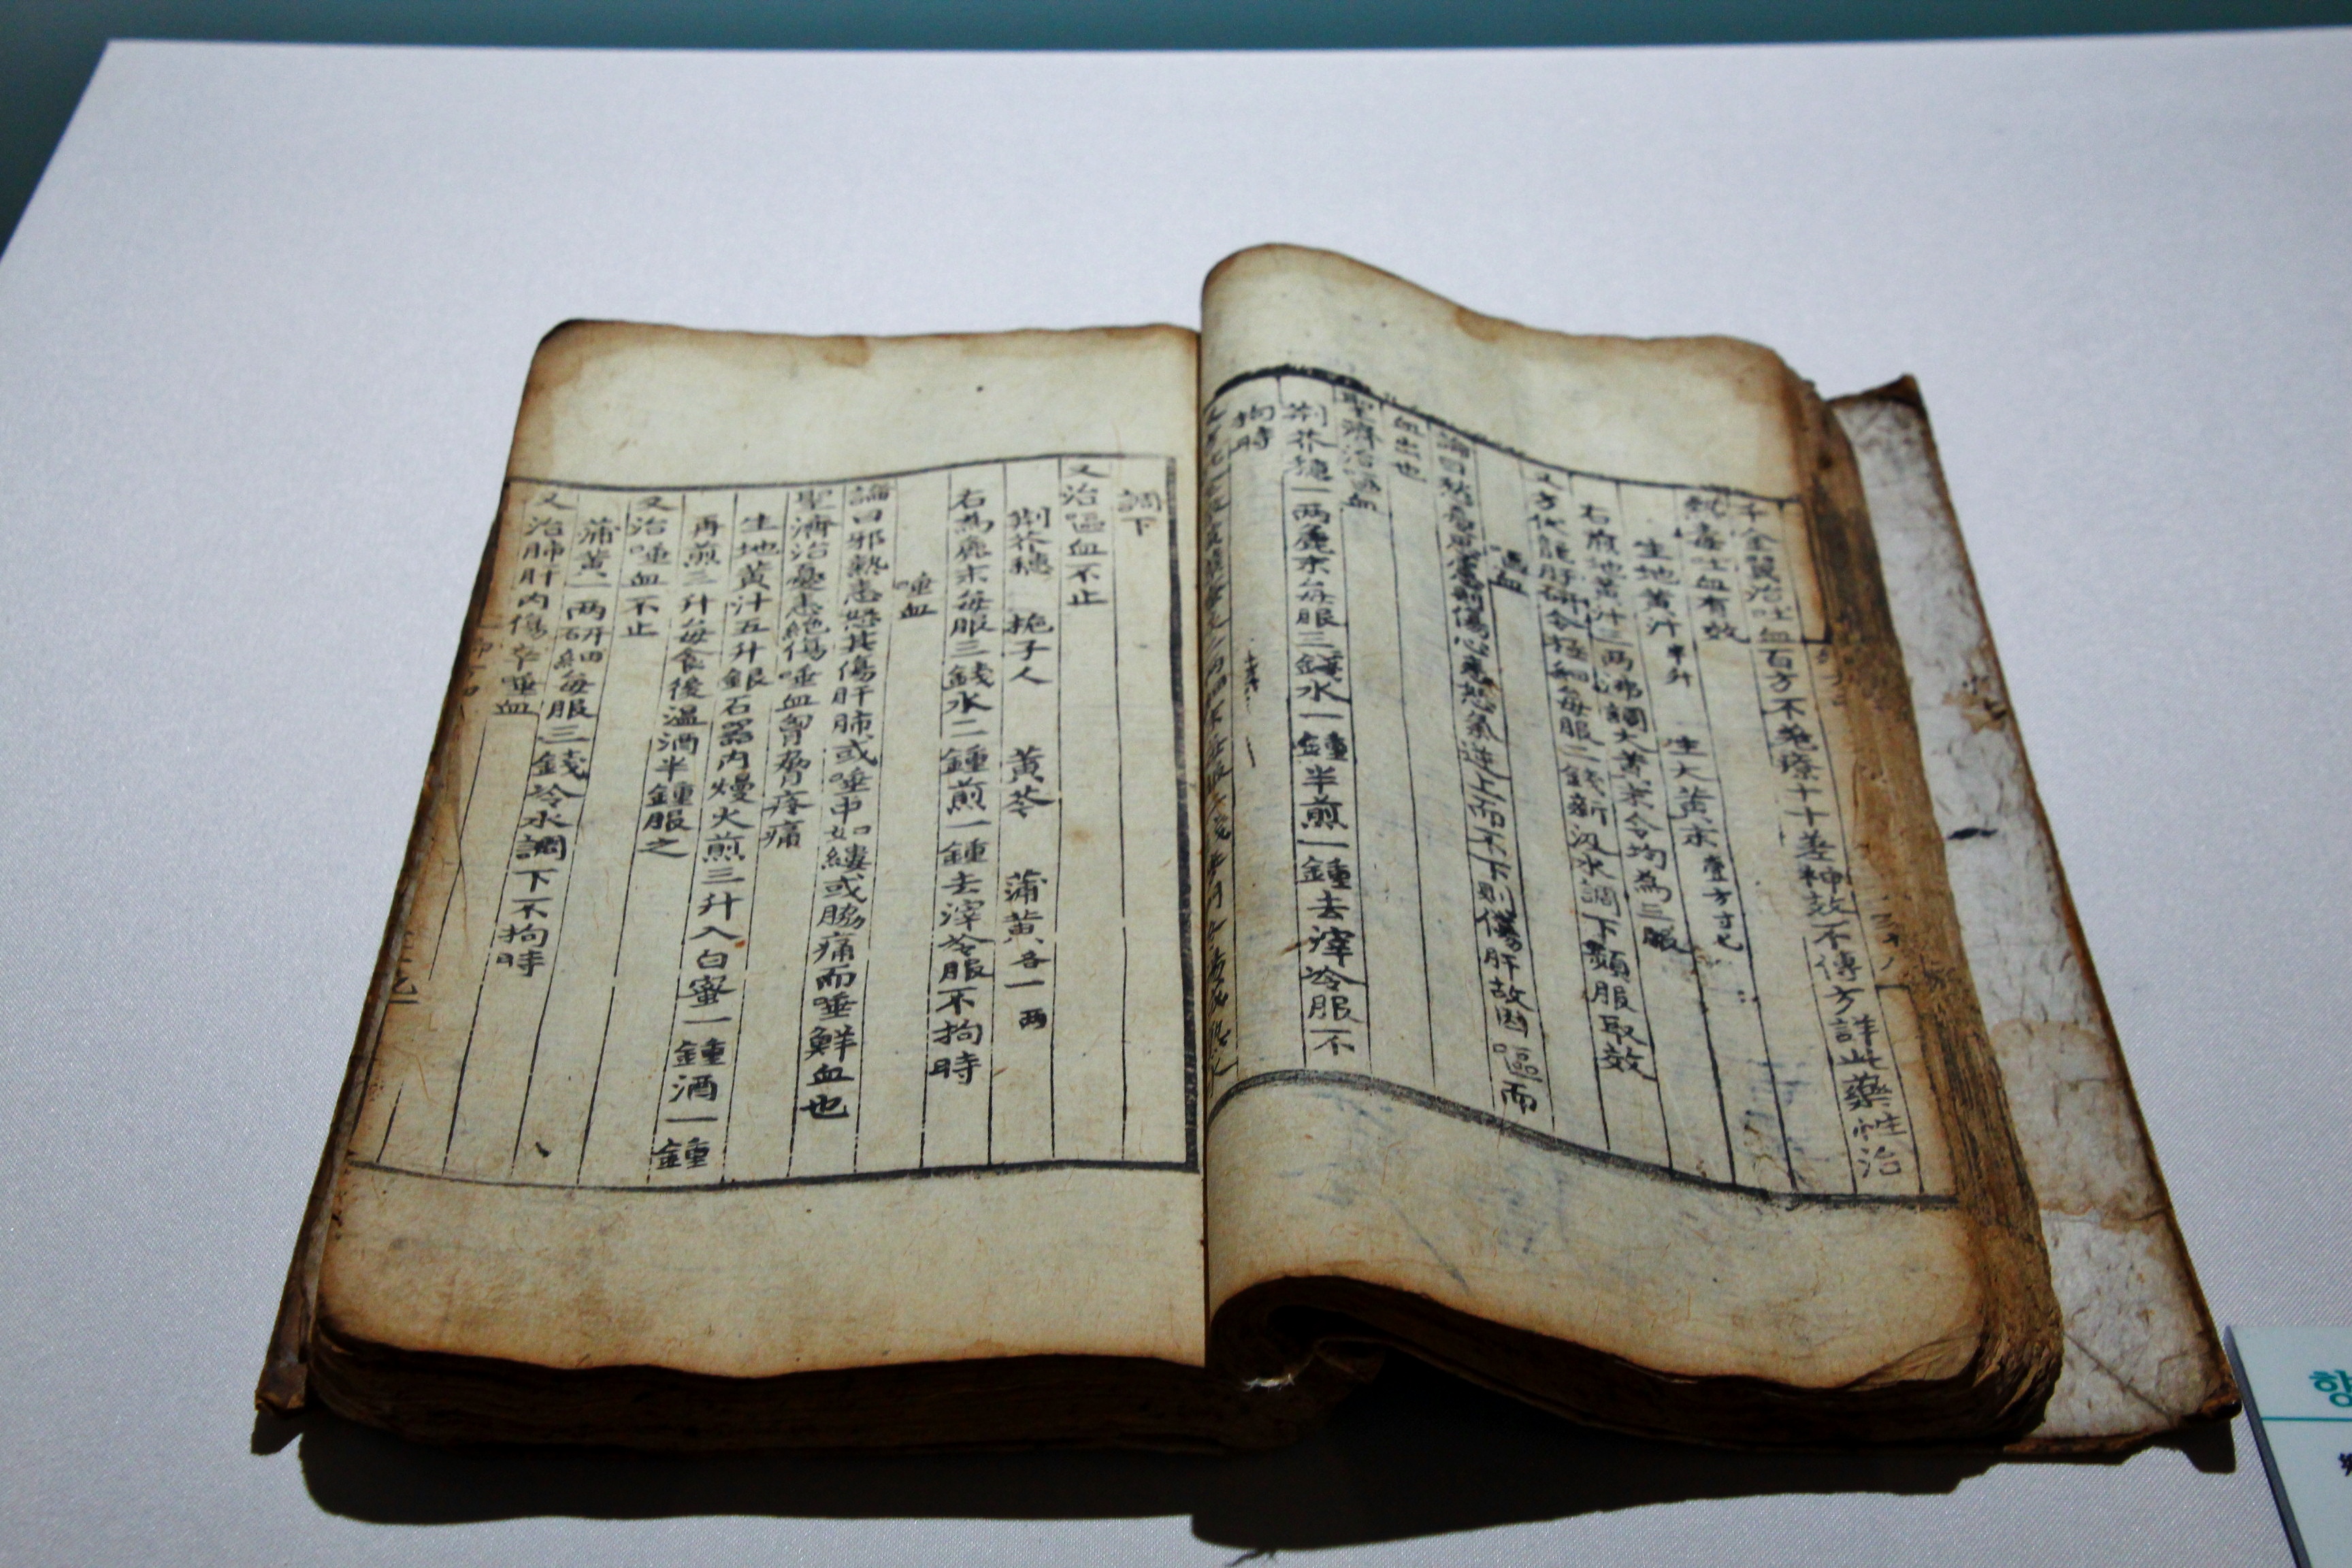 千金翼治吐血百方不差療十十差神效不傳方詳此藥性治
熱毒吐血有效
生地黃汁半升 生大黃末壹方寸匕
右煎地黃汁三兩沸調大黃末令均為三服
又方伏龍肝研令極細每服二錢新汲水調下頻服取效
嘔血
論曰愁憂思慮則傷心恚怒氣逆上而不下則傷肝故因嘔而
血出也
聖濟治嘔血
荊芥穗一兩麁末每服三錢水一鍾半煎一鍾去滓冷服不
拘時
調下
又治嘔血不止
荊芥穗 梔子人 黃芩 蒲黃各一兩
右為麁末每服三錢水二鍾煎一鍾去滓冷服不拘時
唾血
論曰邪熱恚怒其傷肝肺或唾中如縷或脇痛而唾鮮血也
聖濟治憂恚絕傷唾血胷脅疼痛
生地黃汁五升銀石器內熳火煎三升入白蜜一鍾酒一鍾
再煎三升每食後溫酒半鍾服之
又治唾血不止
蒲黃一兩研細每服三錢冷水調下不拘時
又治肺肝內傷卒唾血
향